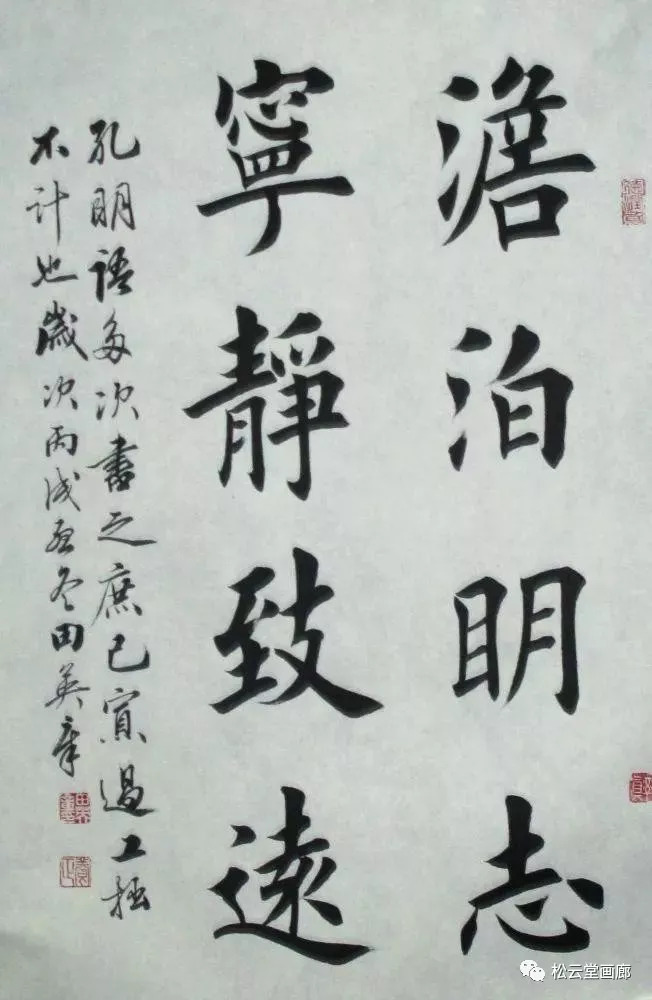 澹泊明志
寧靜致遠
孔明語多次書之庶已寡過工拙
不計也歲次丙戌冬田英章
松云堂画廊